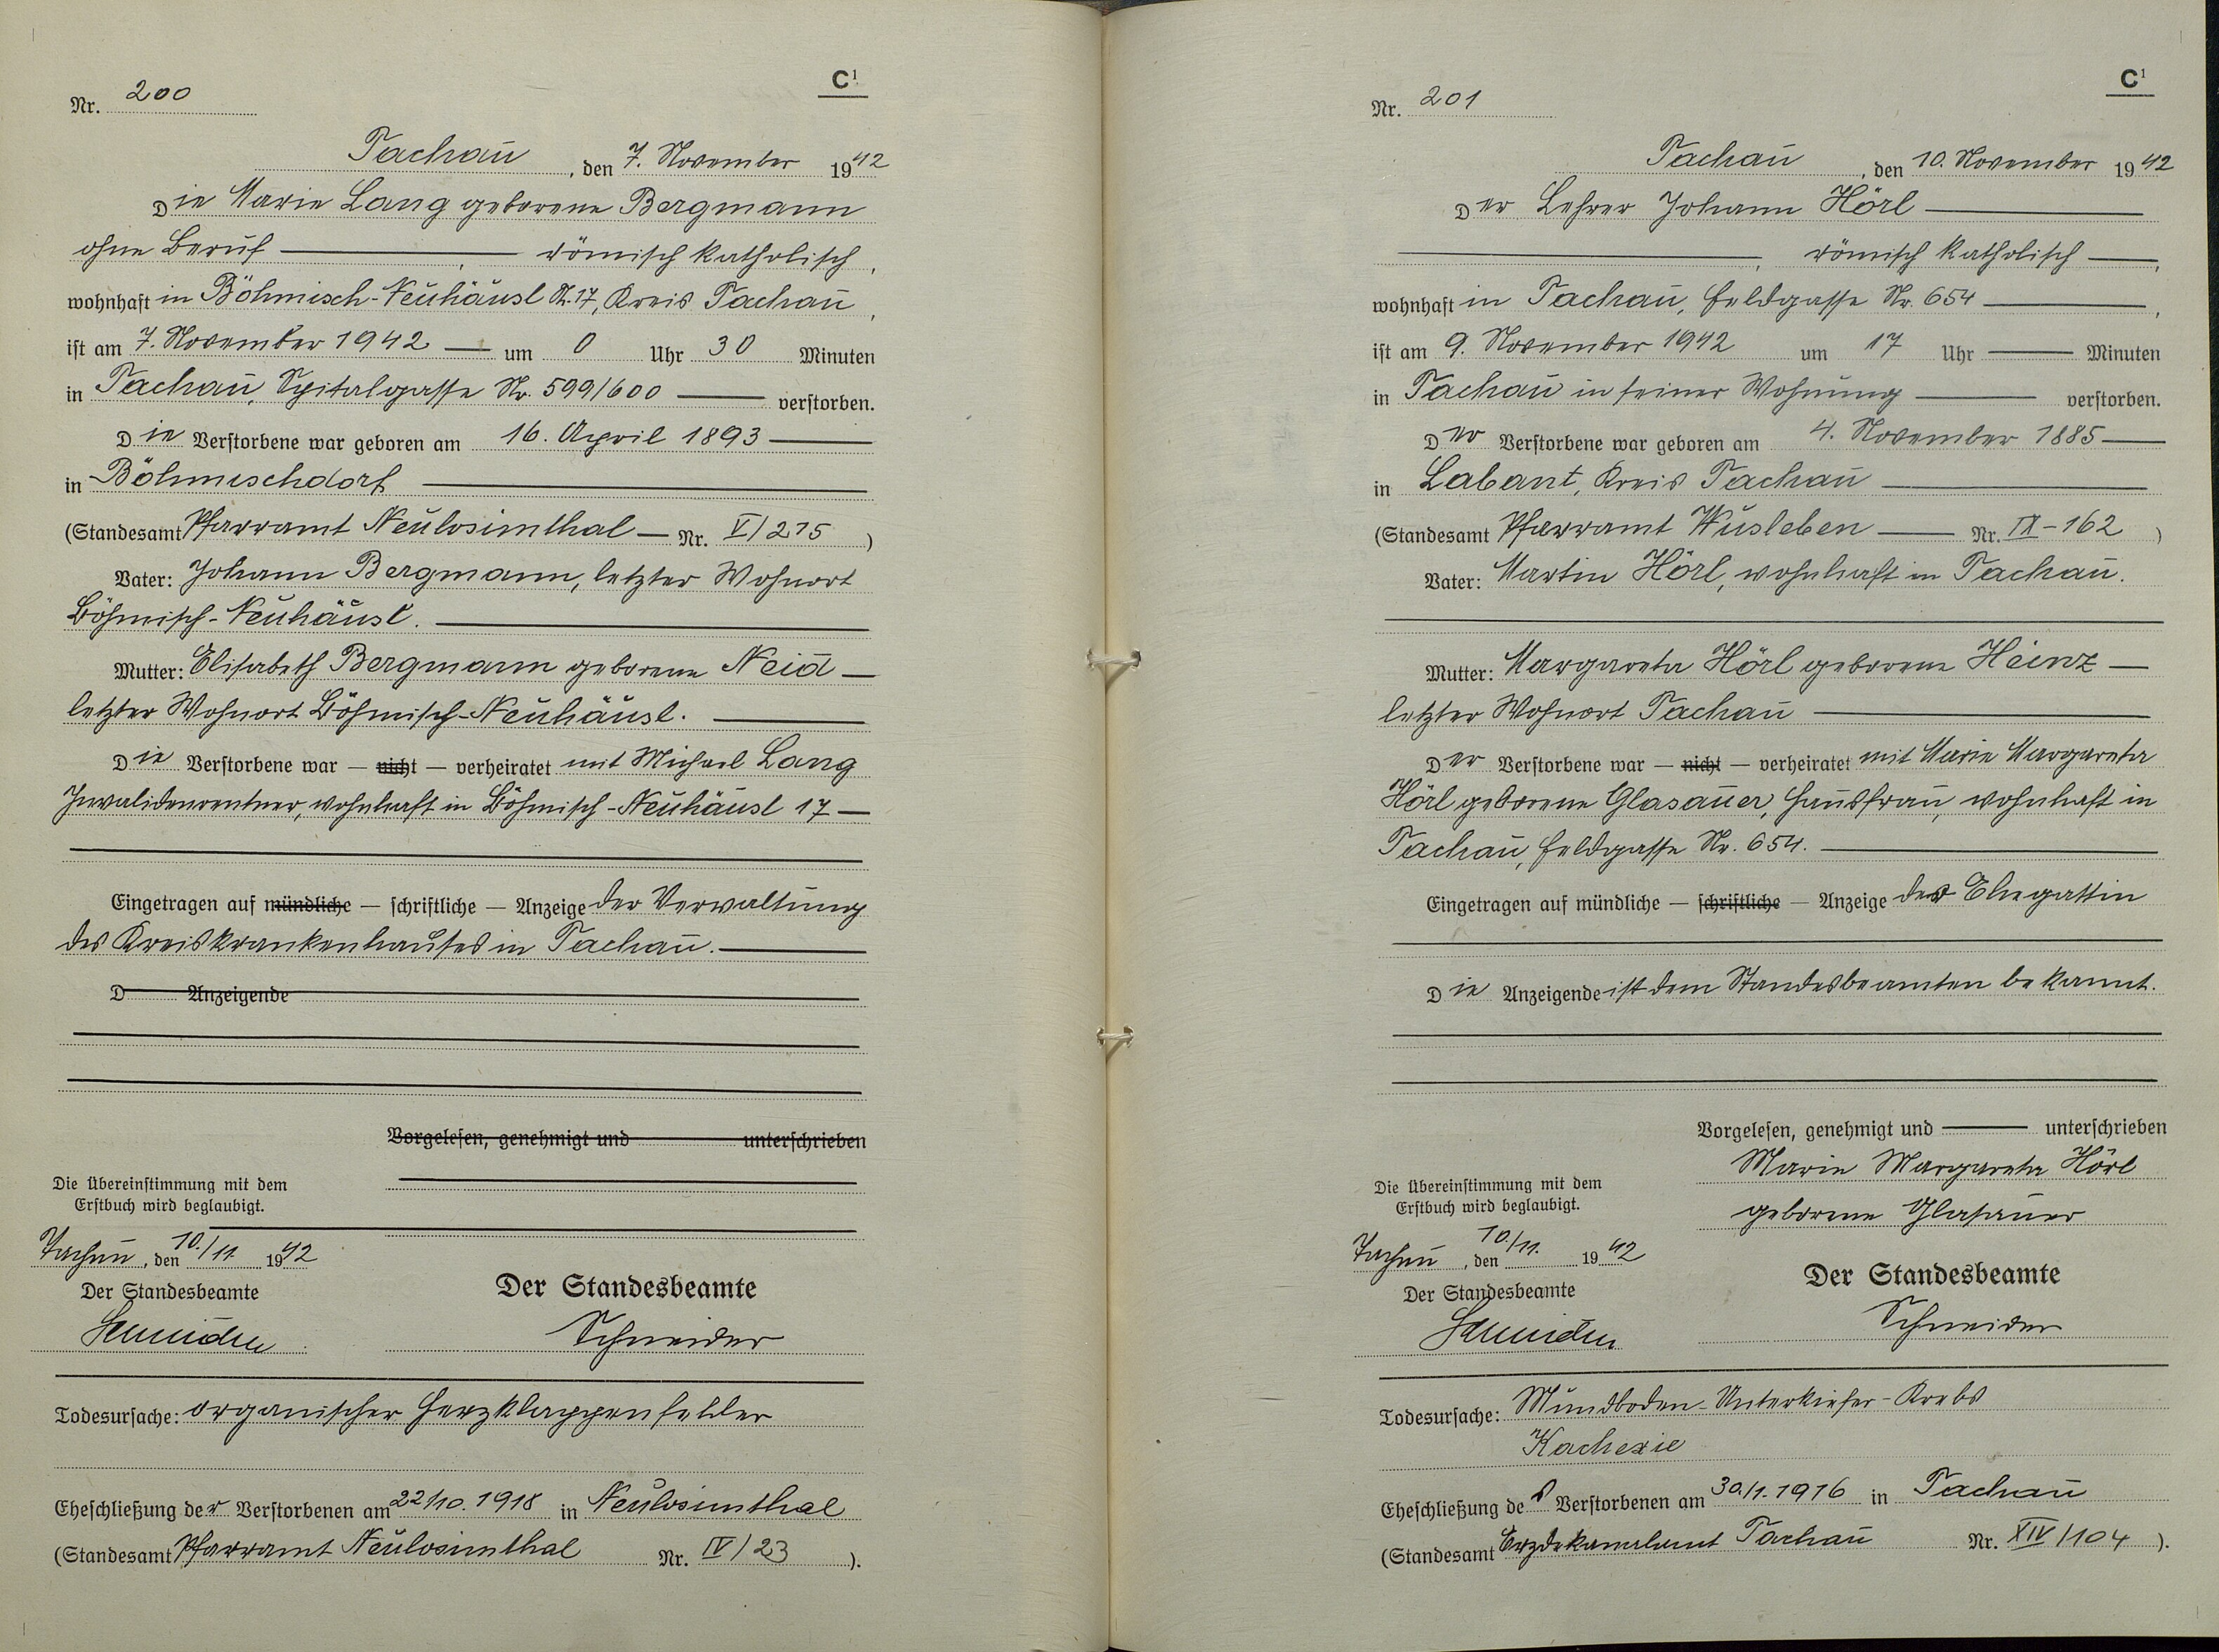 C¹
Nr. 200
Tachau, den 7. November 1942
Die Marie Lang geborene Bergmann
ohne Beruf —, — römisch katholisch,
wohnhaft in Böhmisch-Neuhäusl Nr. 17, Kreis Tachau,
ist am 7. November 1942 — um 0 Uhr 30 Minuten
in Tachau, Spitalgasse Nr. 599/600 — verstorben.
Die Verstorbene war geboren am 16. April 1893 —
in Böhmischdorf —
(Standesamt Pfarramt Neulosimthal — Nr. V/275)
Vater: Johann Bergmann, letzter Wohnort
Böhmisch-Neuhäusl. —
Mutter: Elisabeth Bergmann geborene Neid —
letzter Wohnort Böhmisch-Neuhäusl. —
Die Verstorbene war — nicht — verheiratet mit Michael Lang
Invalidenrentner, wohnhaft in Böhmisch-Neuhäusl 17 —
Eingetragen auf mündliche — schriftliche — Anzeige der Verwaltung
des Kreiskrankenhauses in Tachau. —
D Anzeigende
Vorgelesen, genehmigt und unterschrieben
Die Übereinstimmung mit dem
Erstbuch wird beglaubigt.
Tachau, den 10./11. 1942
Der Standesbeamte
Schneider
Der Standesbeamte
Schneider
Todesursache: organischer Herzklappenfehler
Eheschließung der Verstorbenen am 22/10. 1918 in Neulosimthal
(Standesamt Pfarramt Neulosimthal Nr. IV/23).
C¹
Nr. 201
Tachau, den 10. November 1942
Der Lehrer Johann Hörl —
—, römisch katholisch —,
wohnhaft in Tachau, Feldgasse Nr. 654 —,
ist am 9. November 1942 um 17 Uhr — Minuten
in Tachau in seiner Wohnung — verstorben.
Der Verstorbene war geboren am 4. November 1885 —
in Labant, Kreis Tachau —
(Standesamt Pfarramt Wusleben — Nr. IX-162)
Vater: Martin Hörl, wohnhaft in Tachau.
Mutter: Margareta Hörl geborene Heinz —
letzter Wohnort Tachau —
Der Verstorbene war — nicht — verheiratet mit Marie Margareta
Hörl geborene Glasauer, Hausfrau, wohnhaft in
Tachau, Feldgasse Nr. 654. —
Eingetragen auf mündliche — schriftliche — Anzeige der Ehegattin
Die Anzeigende ist dem Standesbeamten bekannt.
Vorgelesen, genehmigt und — unterschrieben
Marie Margareta Hörl
geborene Glasauer
Die Übereinstimmung mit dem
Erstbuch wird beglaubigt.
Tachau, den 10./11. 1942
Der Standesbeamte
Schneider
Der Standesbeamte
Schneider
Todesursache: Mundboden-Unterkiefer-Krebs
Kachexie
Eheschließung des Verstorbenen am 30./1. 1916 in Tachau
(Standesamt Erzdekanalamt Tachau Nr. XIV/104).